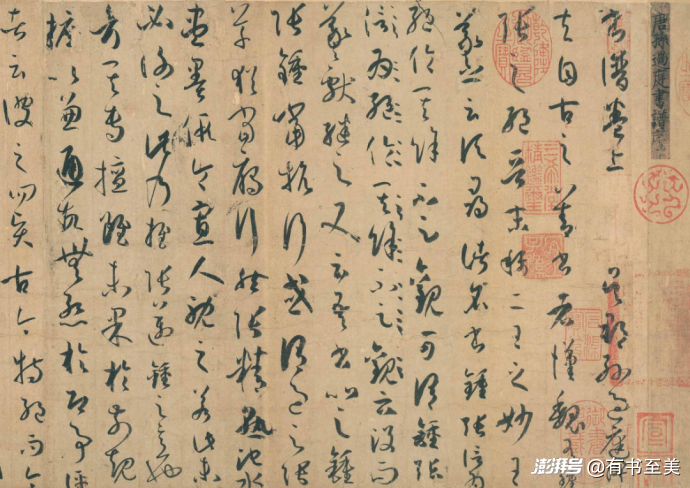 唐孫過庭書譜
書譜卷上 吳郡孫過庭撰
夫自古之善書者漢魏有鍾
張之絕晉末稱二王之妙王
羲之云頃尋諸名書鍾張信為
絕倫其餘不足觀可謂鍾張
信為絕倫其餘不足觀云沒而
羲獻繼之又云吾書比之鍾
張鍾當抗行或謂過之張
草猶當雁行然張精熟池水
盡墨假令寡人耽之若此未
必謝之此乃推張邁鍾之意也
考其專擅雖未果於前規
摭以兼通故無慚於即事評
者云彼之四賢古今特絕而今
澎湃号@有书至美